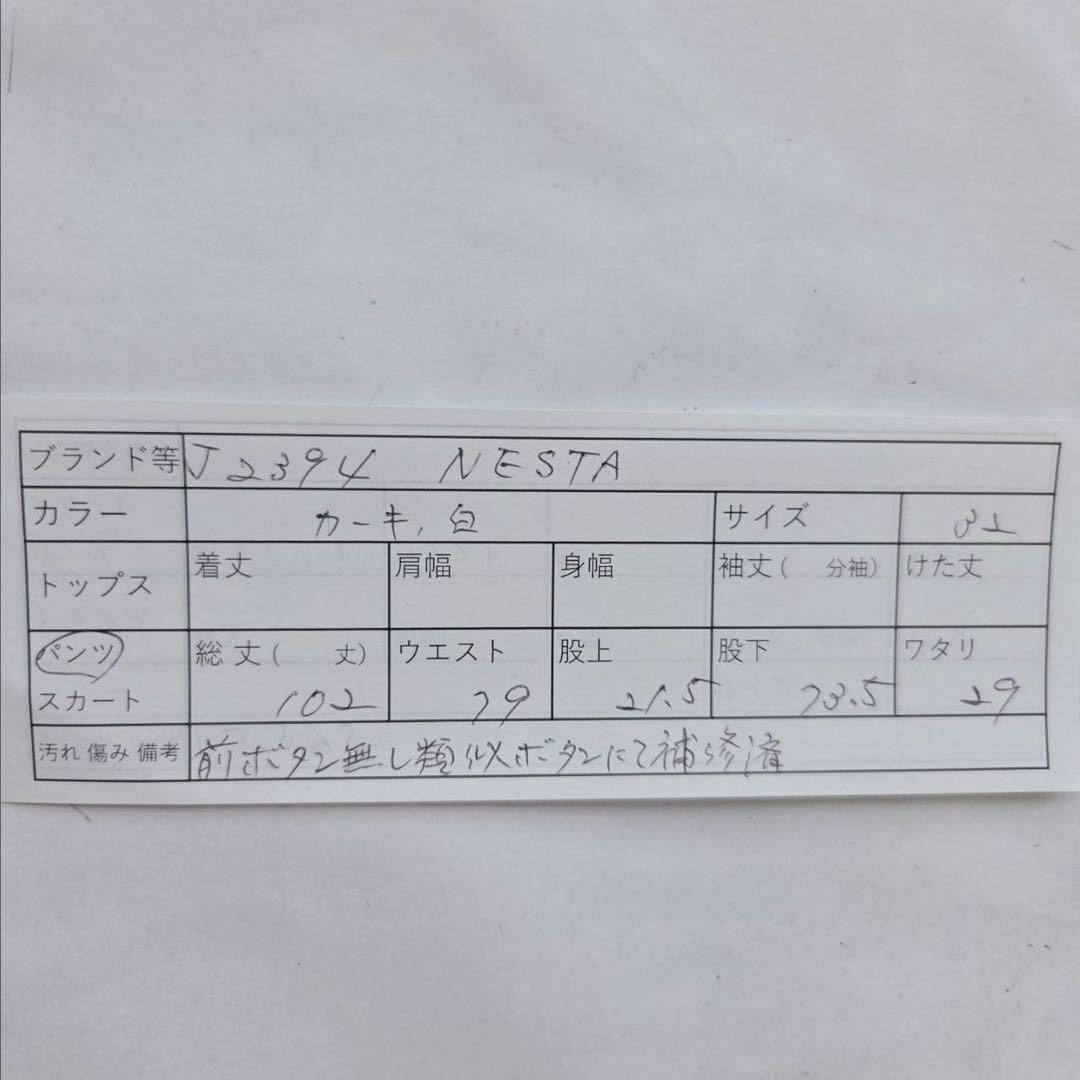 ブランド等 J2394 NESTA
カラー カーキ、白 サイズ 32
トップス 着丈 肩幅 身幅 袖丈( 分袖) けた丈
パンツ 総丈( 丈) ウエスト 股上 股下 ワタリ
スカート 102 79 21.5 73.5 29
汚れ 傷み 備考 前ボタン無し類似ボタンにて補修済